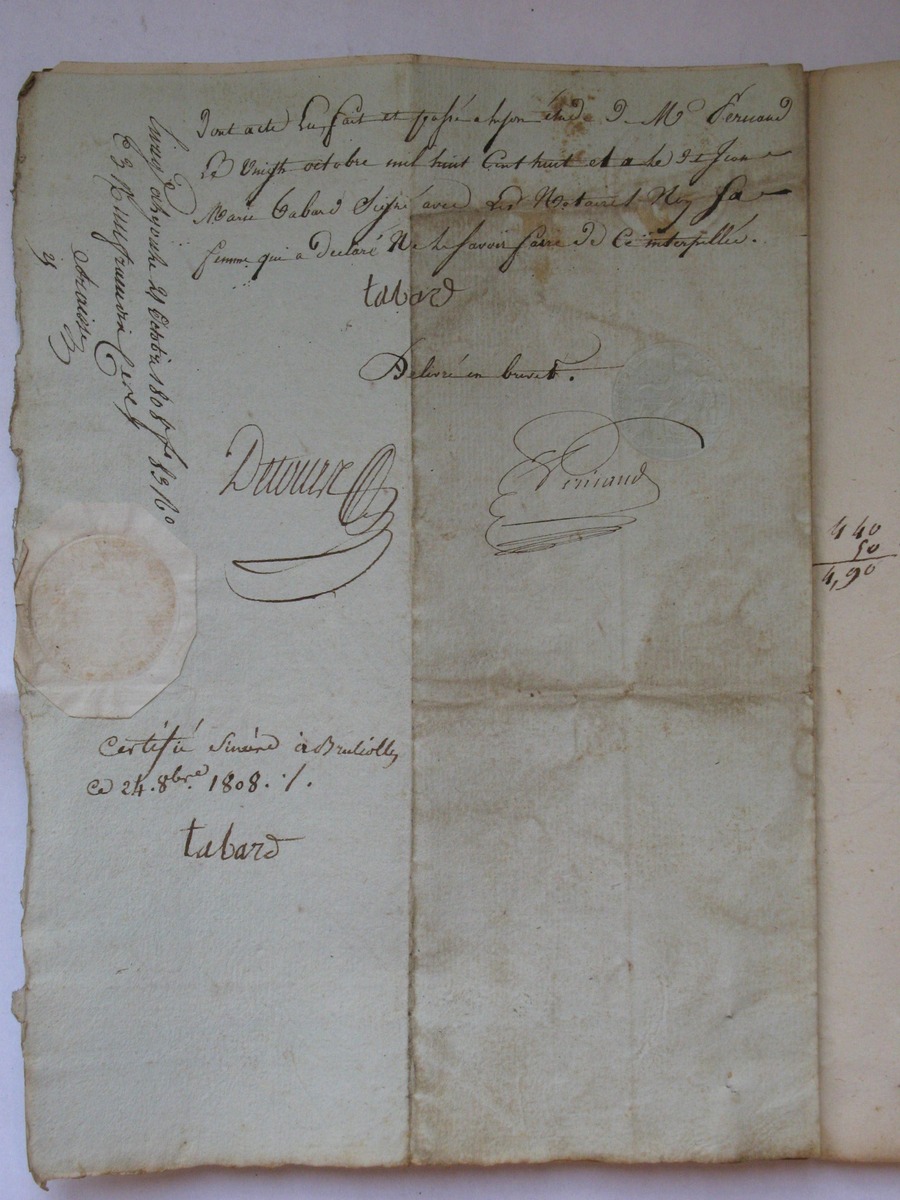 Dont acte Lu fait et passé a Lyon étude D. Me Fernand
Le Vingt octobre mil huit Cent huit et a le dt Jean
Marie Tabard Signé avec Les Notaires Non Sa
femme qui a declaré Ne le Savoir faire de Ce interpellée.
tabard
Delivré en brevet.
Detours Fernand
21 Octobre 1808 fo 83 Ro
Certifié Sincère à Brulioles
ce 24. 8bre. 1808. ./.
tabard
4 40
50
4,90